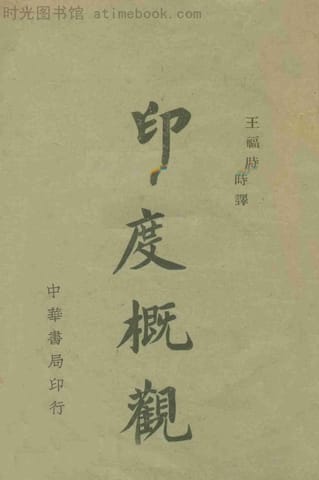 时光图书馆 - atimebook.com
王福時
時譯
印度概觀
中華書局印行